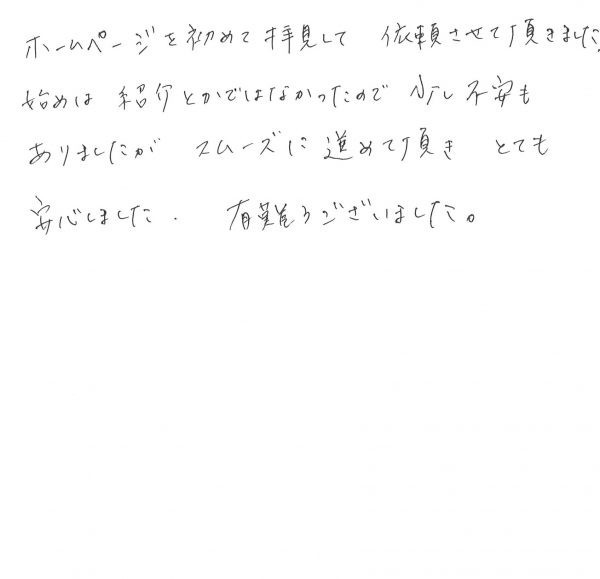 ホームページを初めて拝見して 依頼させて頂きました
始めは 紹介とかではなかったので 少し不安も
ありましたが スムーズに進めて頂き とても
安心しました. 有難うございました。